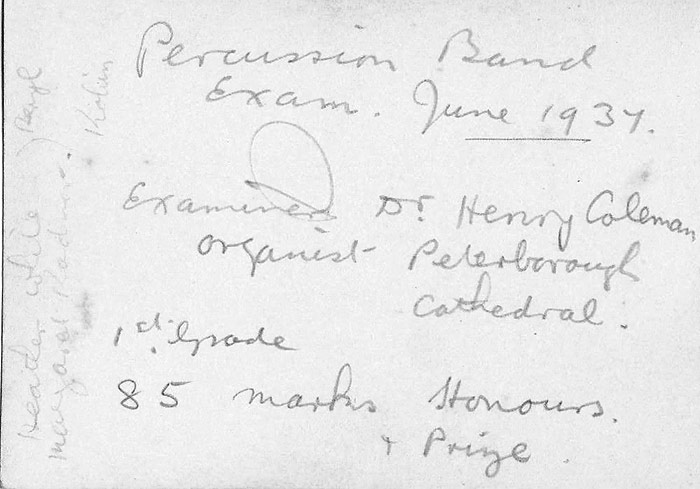 Percussion Band
Exam. June 1937.
Examiner Dr. Henry Coleman
Organist Peterborough
Cathedral.
1st. Grade
85 marks Honours.
+ Prize.
Heather White
Margaret